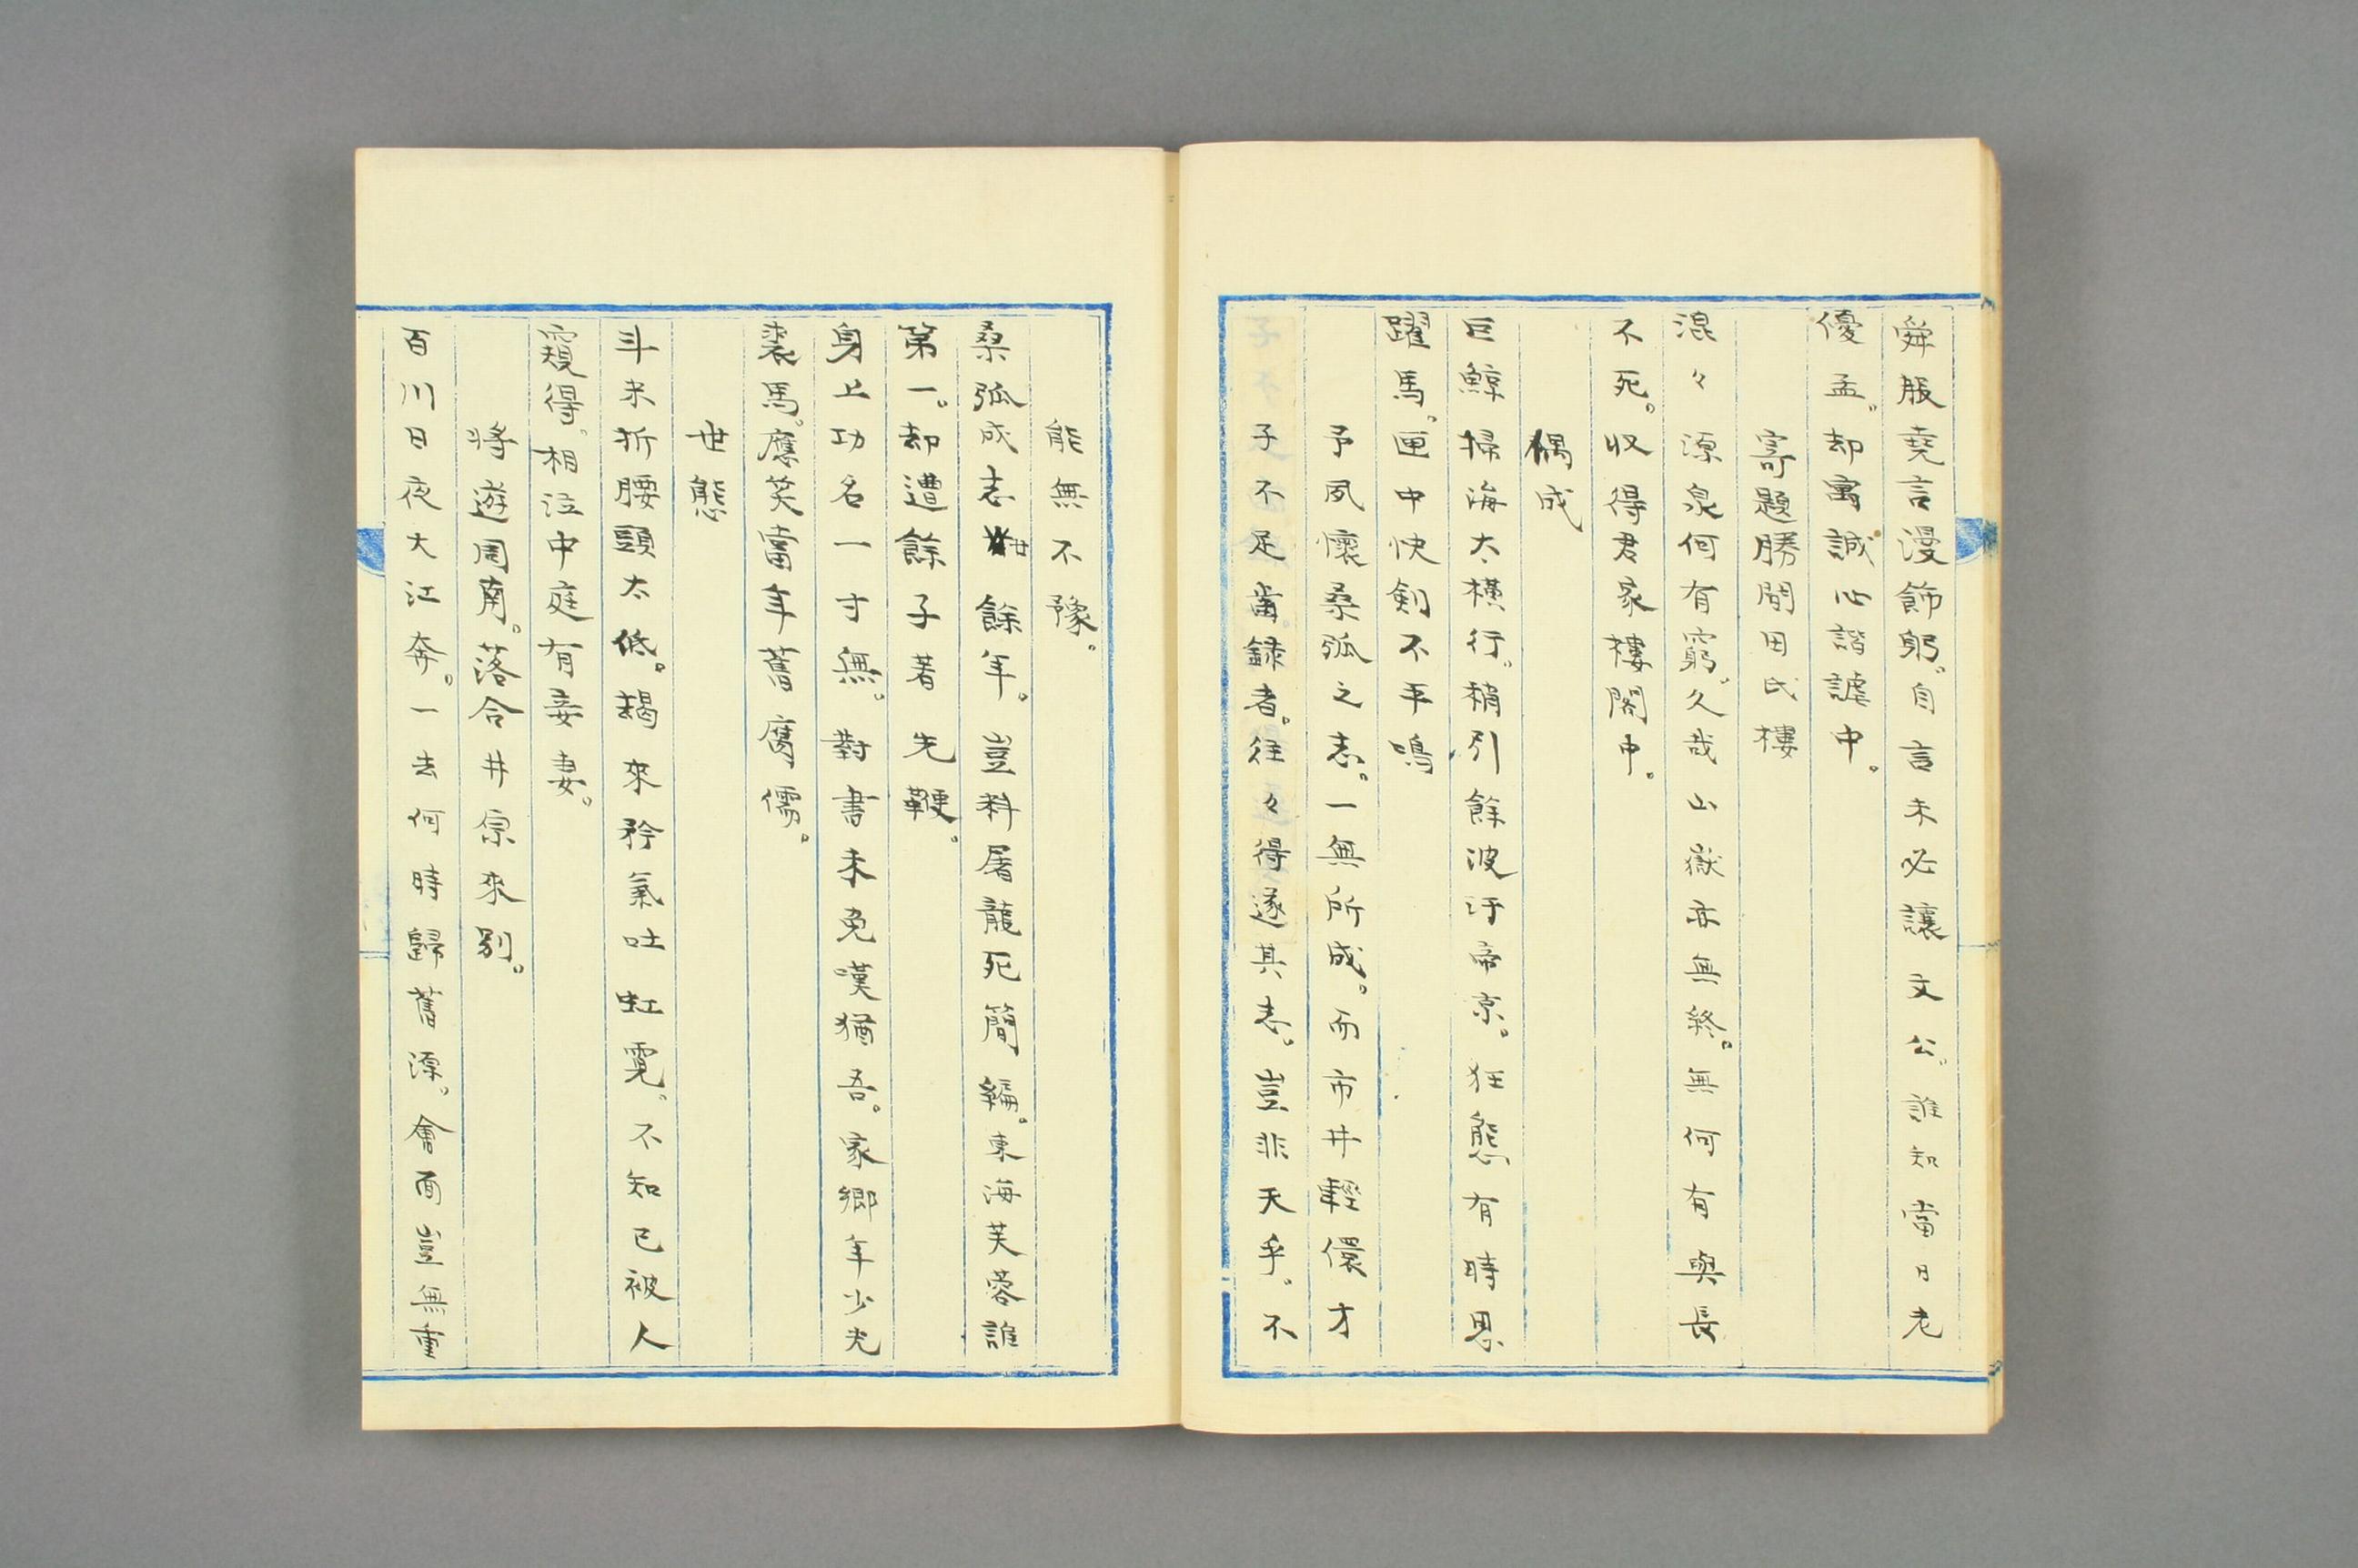 舜服堯言漫飾躬。自言未必讓文公。誰知當日老
優孟。却寓誠心諧謔中。
寄題勝間田氏樓
混々源泉何有窮。久哉山嶽亦無終。無何有與長
不死。収得君家樓閣中。
偶成
巨鯨掃海太横行。稍引餘波汙帝京。狂態有時思
躍馬。匣中快剣不平鳴
予夙懷桑弧之志。一無所成。而市井輕儇才
子不足齒録者。往々得遂其志。豈非天乎。不
能無不豫。
桑弧成志廿餘年。豈料屠龍死簡編。東海芙蓉誰
第一。却遭餘子著先鞭。
身上功名一寸無。對書未免嘆猶吾。家郷年少光
裘馬。應笑當年舊腐儒。
世態
斗米折腰頭太低。朅來矜氣吐虹霓。不知已被人
窺得。相泣中庭有妾妻。
將遊周南。落合井宗來別。
百川日夜大江奔。一去何時歸舊源。會面豈無重